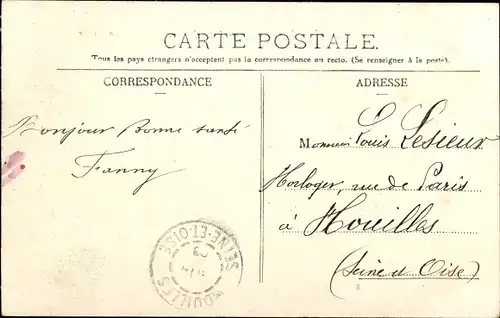 CARTE POSTALE.
Tous les pays étrangers n'acceptent pas la correspondance au recto. (Se renseigner à la poste).
CORRESPONDANCE
ADRESSE
Bonjour Bonne santé
Fanny
Monsieur Louis Lesieur
Horloger, rue de Paris
à Houilles
(Seine et Oise)
HOUILLES
SEINE-ET-OISE